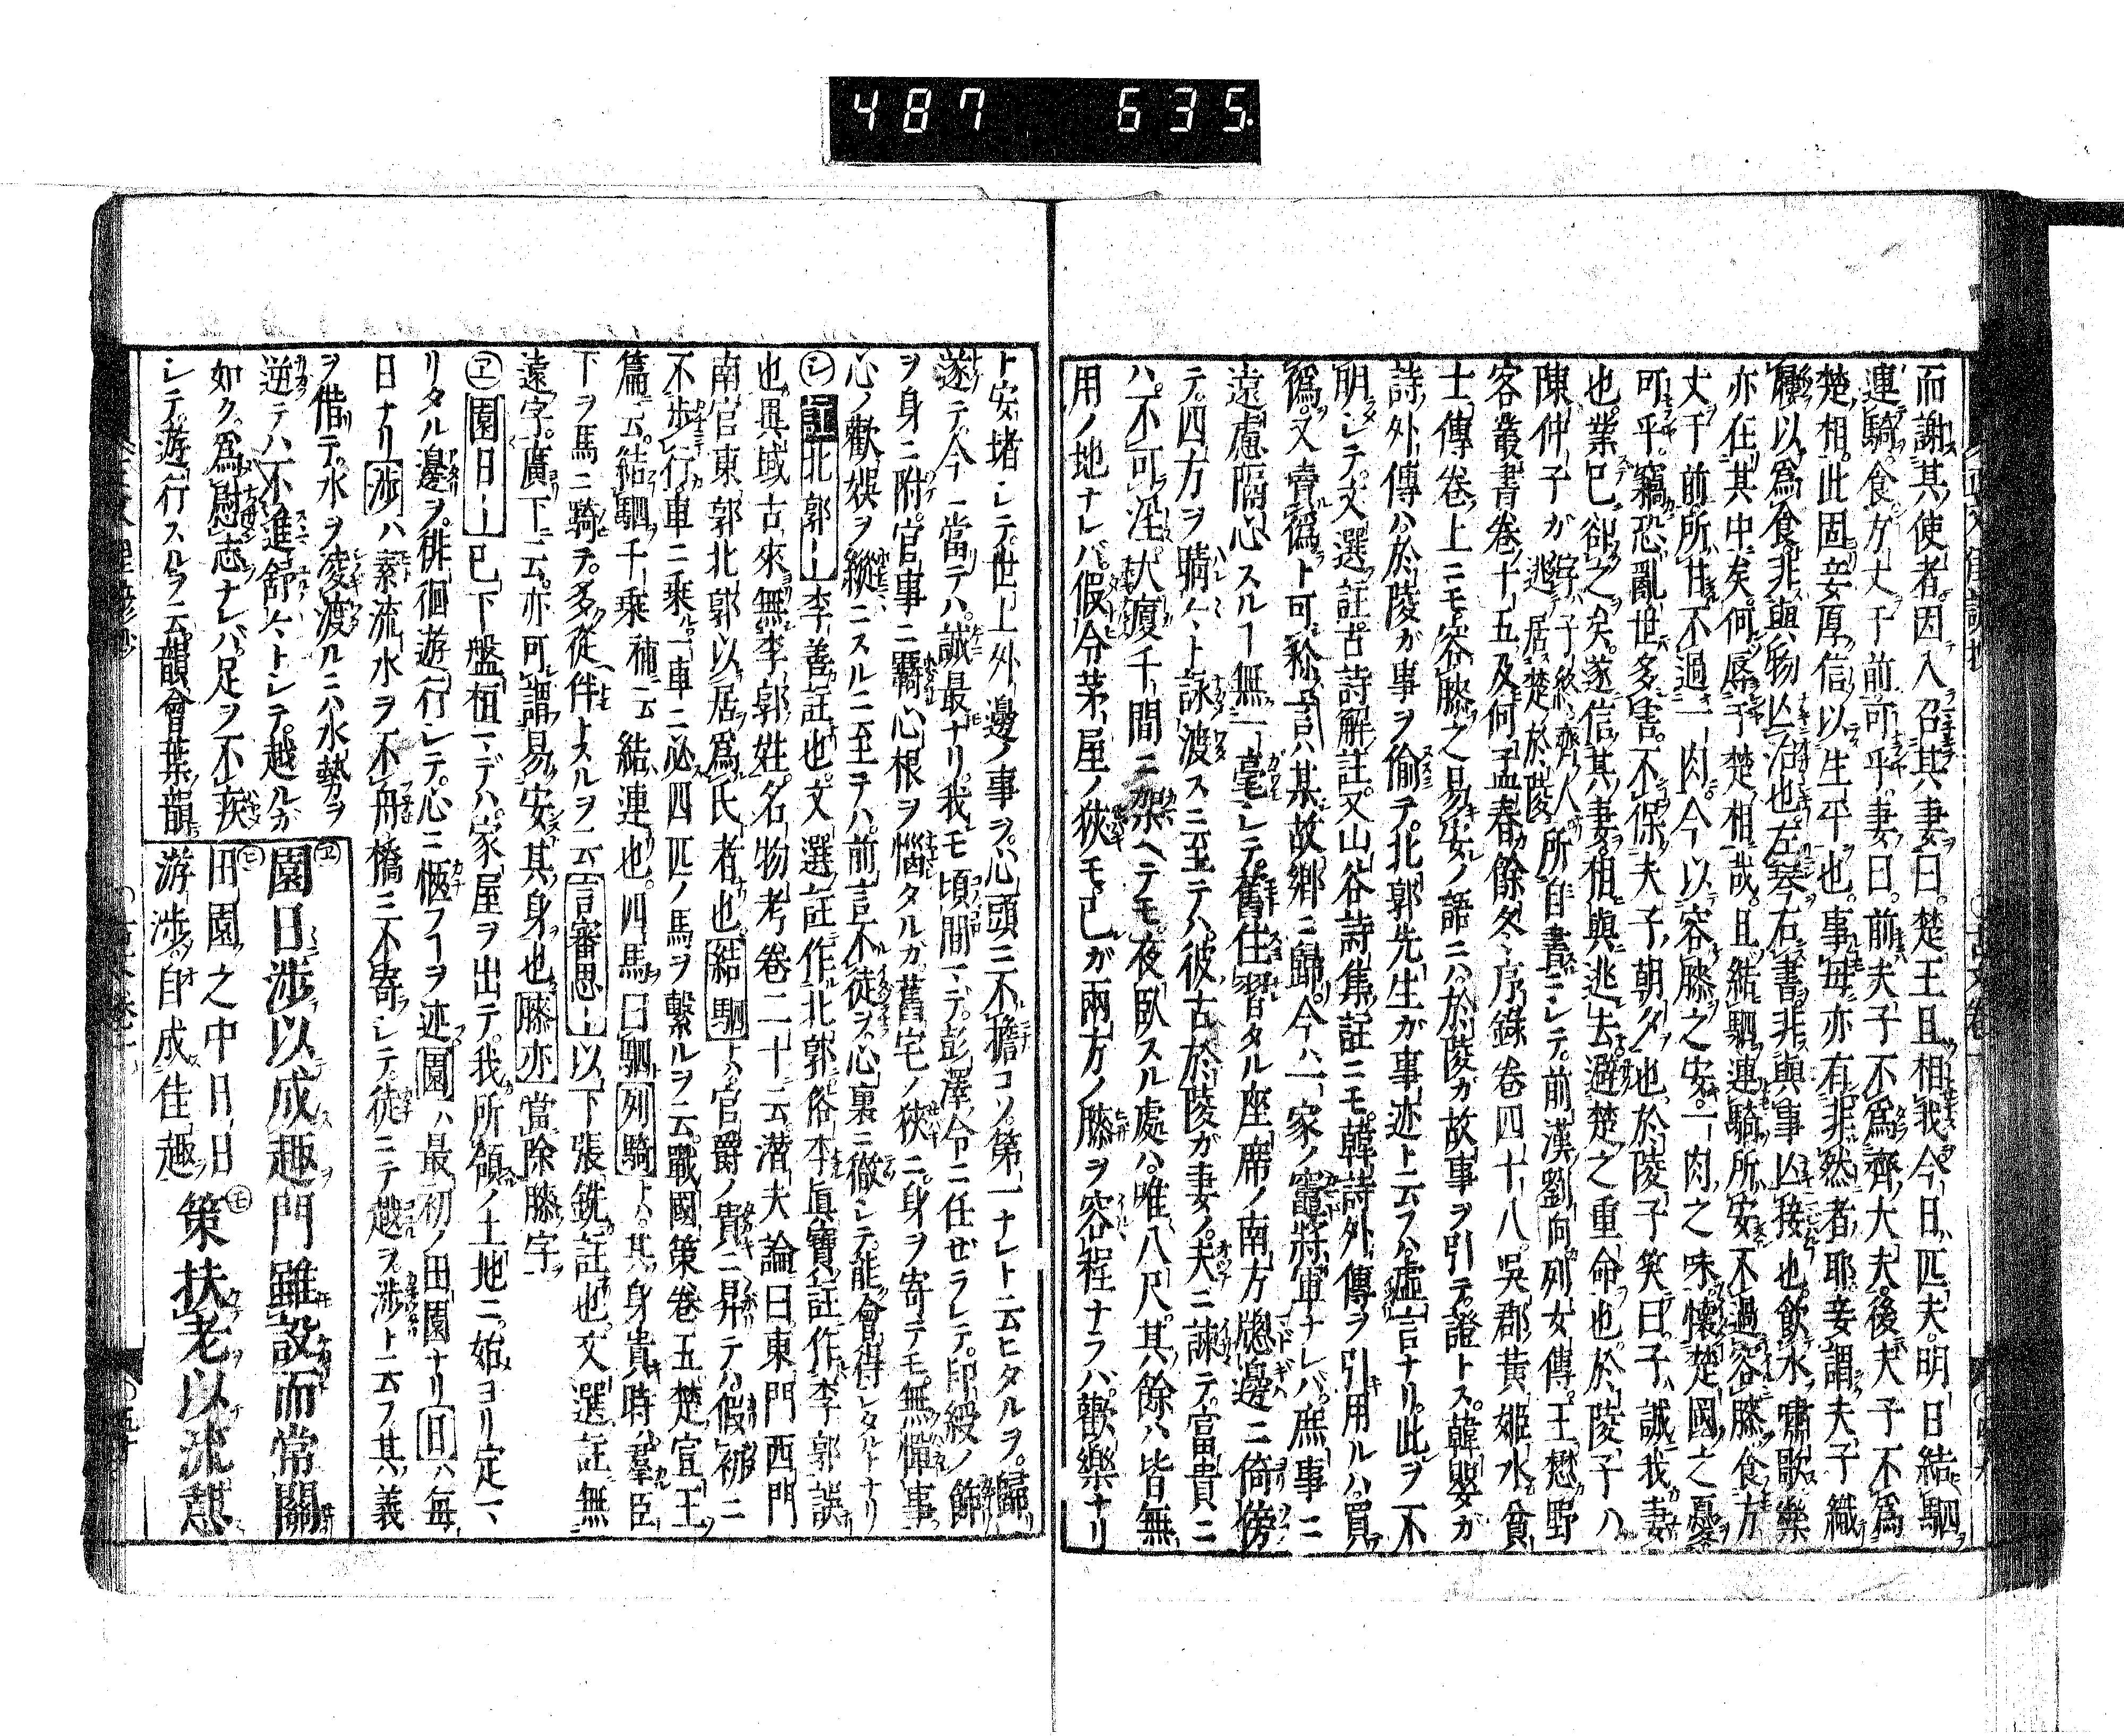 487 635.
而謝其使者因入召其妻曰楚王且相我今日匹夫明日結駟
連騎食方丈于前可乎妻曰前夫子不爲齊大夫後夫子不爲
楚相此固妾厚信以生平也事毎亦有非然者耶妾謂夫子織
屨以爲食非與物凶治也左琴右書非與事凶接也飲水嘯歌樂
亦在其中矣何辱于楚相哉且結駟連騎所安不過容膝食方
丈于前所甘不過一肉今以容膝之安一肉之味懷楚國之憂
可乎竊恐亂世多害不保夫子朝夕也於陵子笑曰子誠我妻
也業已卻之矣遂信其妻相與逃去避楚之重命也於陵子ハ
陳仲子ガ字ハ子終齊人逃テ居楚於陵所自書ニシテ前漢劉向列女傳王懋野
客叢書卷十五及何孟春餘冬序錄卷四十八吳郡黃姫水貧
士傳卷上ニモ容膝之易安ノ語ニハ於陵ガ故事ヲ引テ證トス韓嬰ガ
詩外傳ハ於陵ガ事ヲ偷テ北郭先生ガ事迹ト云フハ虛言ナリ此ヲ不
明シテ文選註古詩解註又山谷詩集註ニモ韓詩外傳ヲ引用ルハ買
僞又賣僞ト可称言ハ某故鄉ニ歸今ハ一家ノ竈將軍ナレバ庶事ニ
遠慮隔心スルー無一毫シテ舊住習タル座席ノ南方牕邊ニ倚傍
テ四方ヲ騁々ト詠渡スニ至テハ彼古於陵ガ妻ノ夫ニ諫テ富貴ニ
ハ不可淫大廈千間ニ架ヘテモ夜臥スル處ハ唯八尺其餘ハ皆無
用ノ地ナレバ假令茅屋ノ狹モ己ガ兩方ノ膝ヲ容程ナラバ歡樂ナリ
ト安堵シテ世上外邊ノ事ヲ心頭ニ不擔コソ第一ナレト云ヒタルヲ歸
遂テ今一當テハ誠最ナリ我モ頃間マデ彭澤令ニ任ゼラレテ印綬ノ餙
ヲ身ニ附官事ニ覊心根ヲ惱タルガ舊宅ノ狹ニ身ヲ寄テモ無憚事
心ノ歡娛ヲ縱ニスルニ至テハ前言不徒ヲ心裏ニ徹シテ能會得シタルトナリ
㋛註北郭｜李善註也文選註作北郭俗本眞寶註作李郭誤
也異域古來無李郭姓名物考卷二十云潛夫論曰東門西門
南宮東郭北郭以居爲氏者也結駟トハ官爵ノ貴ニ昇テハ假初ニ
不步行車ニ乗ル一車ニ必四匹ノ馬ヲ繫ルヲ云戰國策卷五楚宣王
篇云結駟千乗補云結連也四馬曰駟列騎トハ其身貴時ハ羣臣
下ヲ馬ニ騎テ多從伴トスルヲ云言審思｜以下張銑註也文選註無
遠字廣下云亦可謂易安其身也膝亦當除膝字
㋓園日｜已下盤桓マデハ家屋ヲ出テ我所領ノ土地ニ始ヨリ定マ
リタル邊ヲ徘徊遊行シテ心ニ愜フーヲ述園ハ最初ノ田園ナリ日ハ毎
日ナリ涉ハ素流水ヲ不舟橋ニ不寄シテ徒ニテ越ヲ涉ト云フ其義
ヲ借テ水ヲ凌渡ルニハ水勢ヲ
逆テハ不進舒々トシテ越ルガ
如ク爲慰志ナレバ足ヲ不疾
シテ遊行スルヲ云韻會葉韻
㋓園日涉以成趣門雖設而常關
㋪田園之中日日
游涉自成佳趣
㋲策扶老以流憩